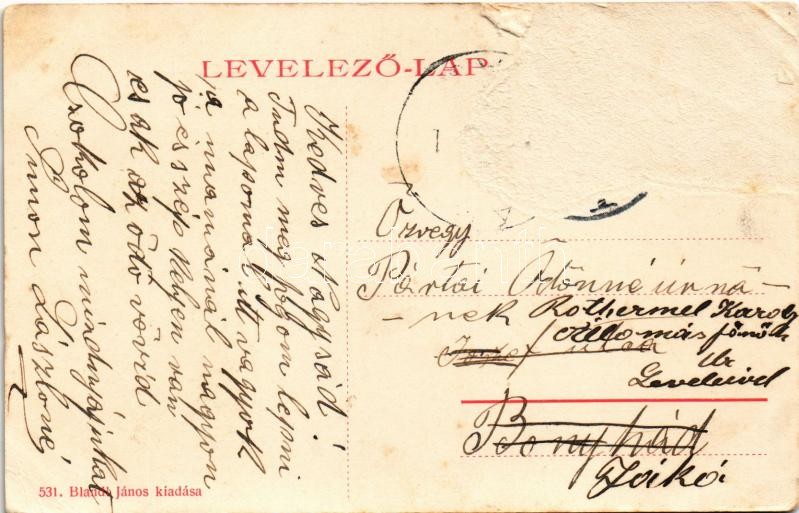 LEVELEZŐ-LAP
Kedves Nagysád!
Tudom meg fogom lepni
a lapomal itt vagyok
a mamánál nagyon
jó és szép helyen van
csak az idő rövid
Csókolom mindnyájukat
Simon Lászlóné
Özvegy
Pártai Ödönné úrnő-
-nek Rothermel Károly
Állomás főnök
utca
úr
leveleivel
Bonyhád
Zsikó
531. János kiadása